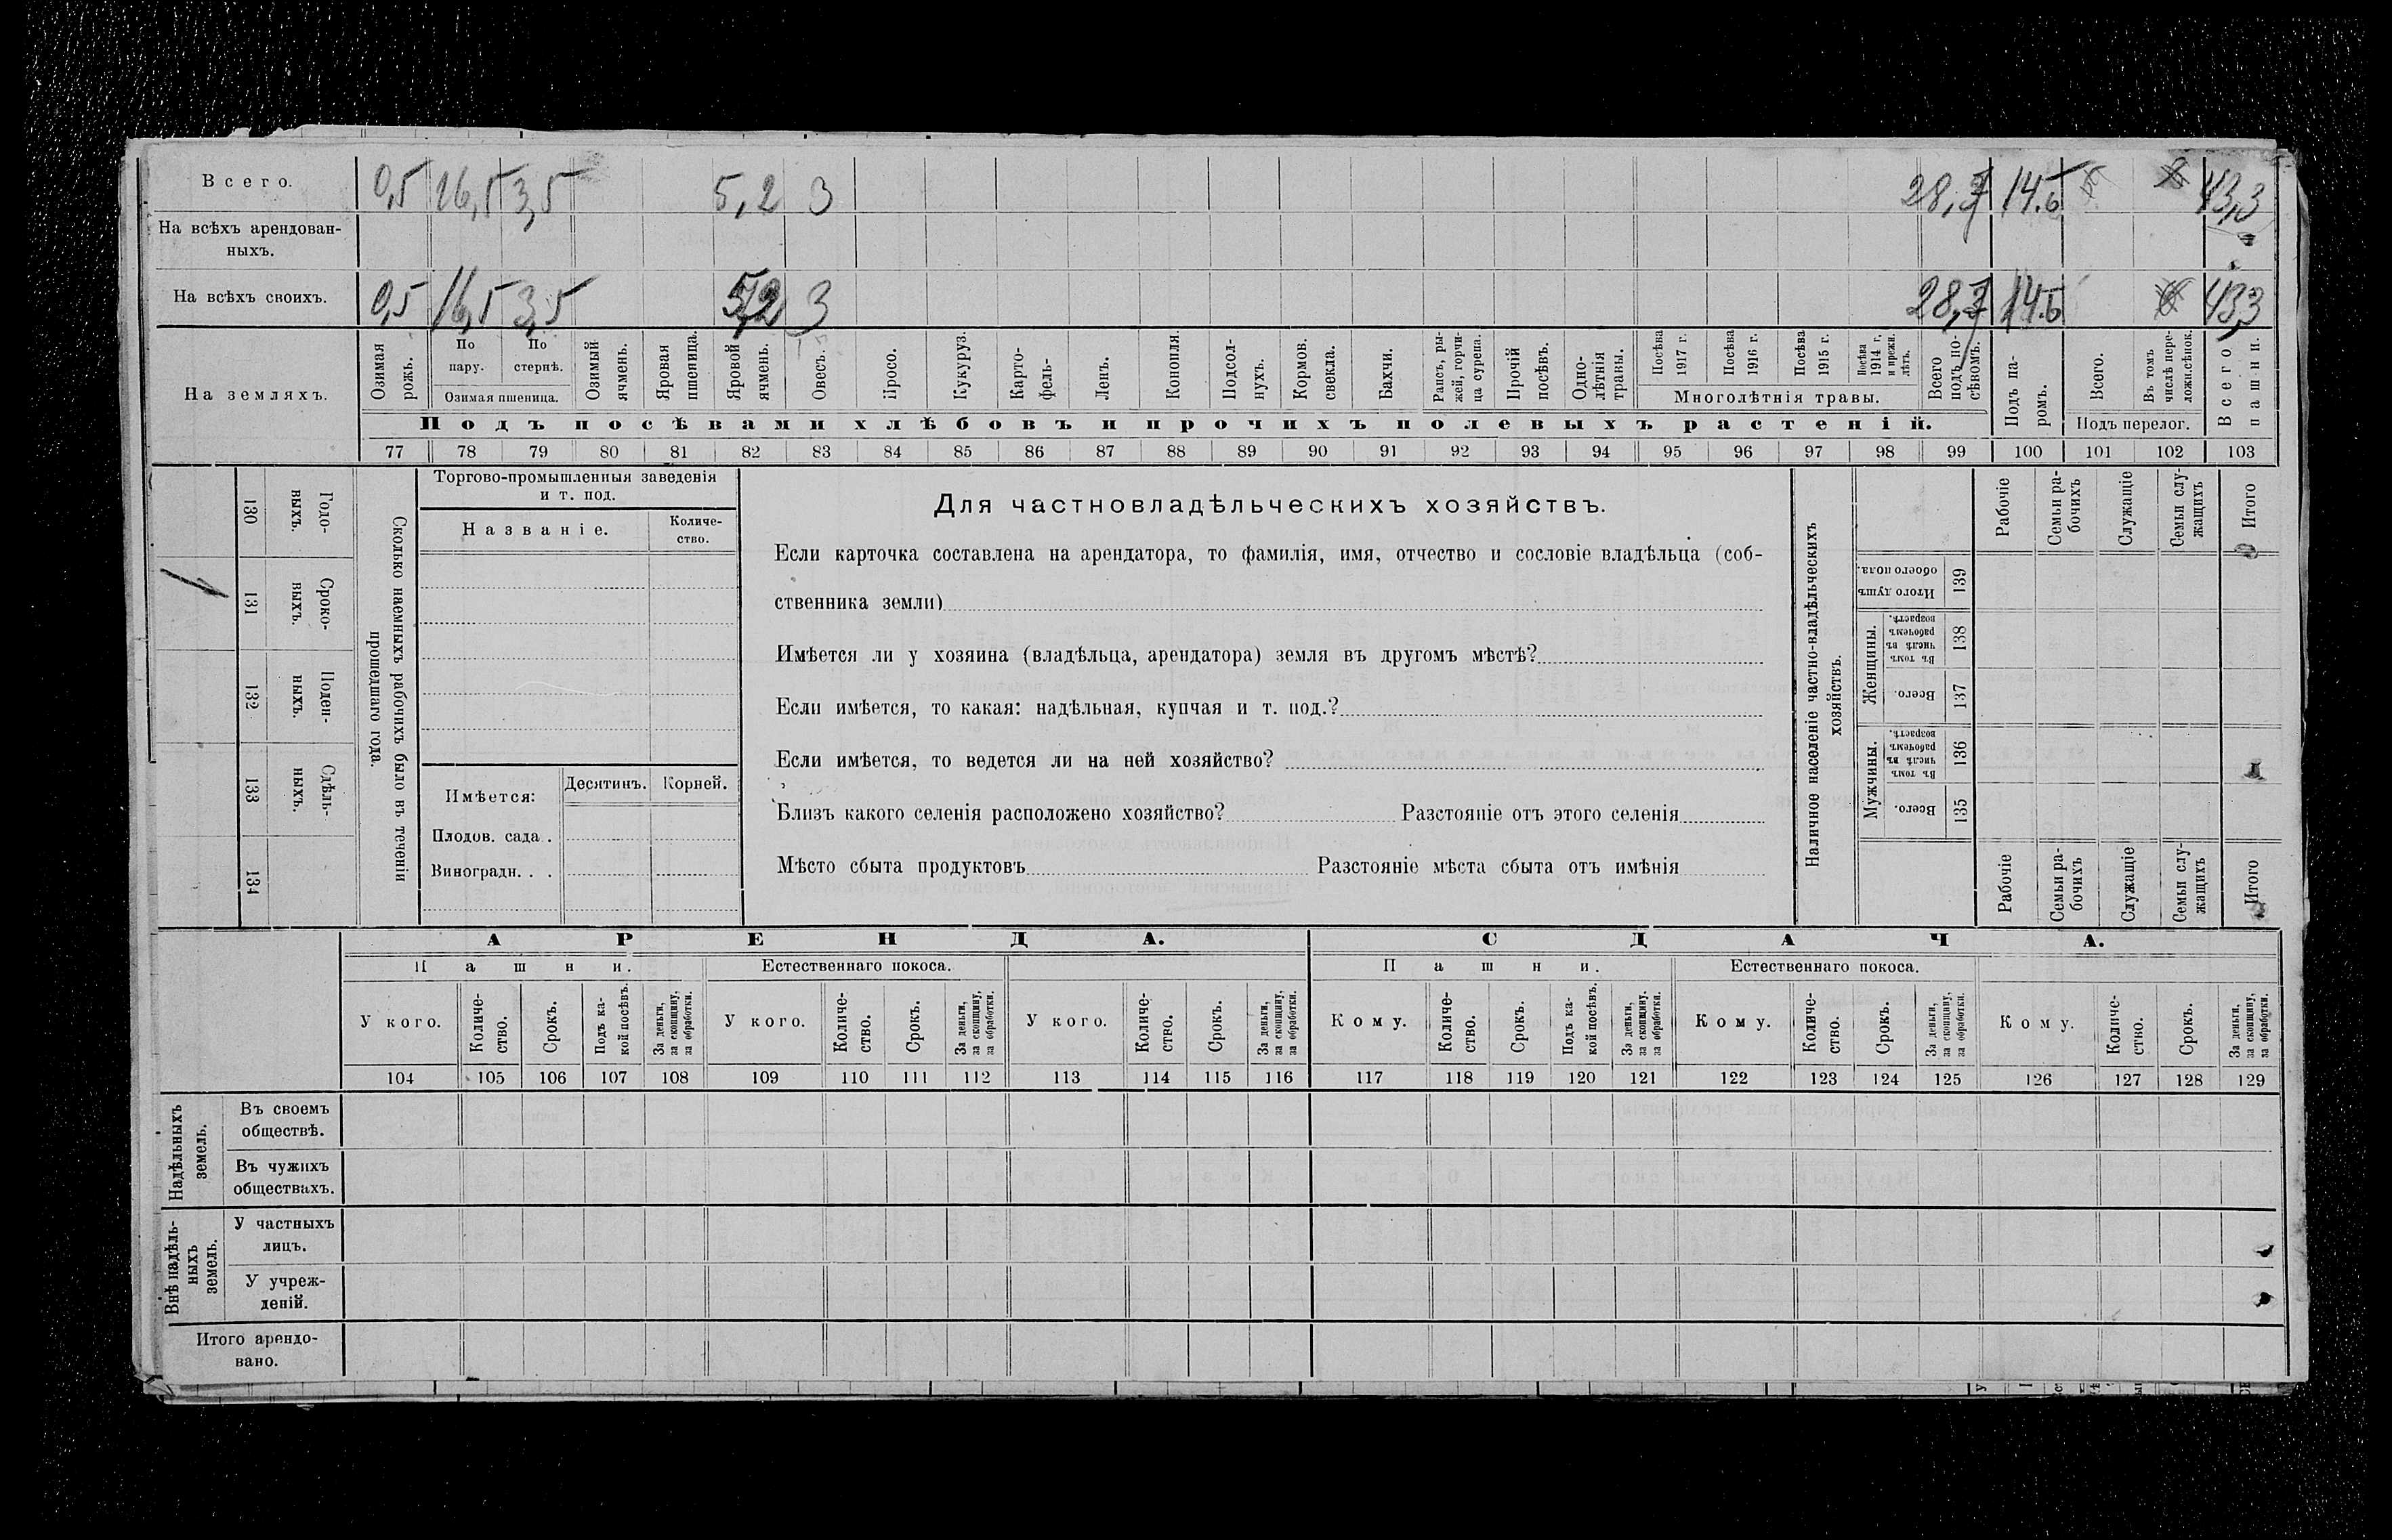 Всего. 0,5 16,5 3,5 5,2 3 28,7 14.6 43,3
На всѣхъ арендован-
ныхъ.
На всѣхъ своихъ. 0,5 16,5 3,5 5,2 3 28,7 14.6 43,3
На земляхъ.
Озимая рожь.
По пару.
По стернѣ.
Озимая пшеница.
Озимый ячмень.
Яровая пшеница.
Яровой ячмень.
Овесъ.
Просо.
Кукуруз.
Карто-
фель-
Ленъ.
Конопля
Подсол-
нухъ.
Кормов.
свекла.
Бахчи.
Рапсъ, ры-
жай, горчи-
ца сурепа.
Прочій
посѣвъ.
Одно-
лѣтнія
травы.
Посѣва
1917 г.
Посѣва
1916 г.
Посѣва
1915 г.
Посѣва
1914 г,
и прежн.
лѣтъ.
Многолѣтнія травы.
Всего
подъ по-
сѣвомъ.
Подъ па-
ромъ.
Всего.
Въ томъ
числѣ пере-
ложн.сѣнок.
Подъ перелог.
Всего
пашни.
Подъ посѣвами хлѣбовъ и прочихъ полевыхъ растеній.
77 78 79 80 81 82 83 84 85 86 87 88 89 90 91 92 93 94 95 96 97 98 99 100 101 102 103
130 Годо-
выхъ.
131 Сроко-
ныхъ.
132 Поден-
ныхъ.
133 Сдѣль-
ныхъ.
134
Сколько наемныхъ рабочихъ было въ теченіи
прошедшаго года.
Торгово-промышленныя заведенія
и т. под.
Названіе.
Количе-
ство.
Имѣется: Десятинъ. Корней.
Плодов. сада .
Виноградн. . .
Для частновладѣльческихъ хозяйствъ.
Если карточка составлена на арендатора, то фамилія, имя, отчество и сословіе владѣльца (соб-
ственника земли)
Имѣется ли у хозяина (владѣльца, арендатора) земля въ другомъ мѣстѣ?
Если имѣется, то какая: надѣльная, купчая и т. под.?
Если имѣется, то ведется ли на ней хозяйство?
Близъ какого селенія расположено хозяйство? Разстояніе отъ этого селенія
Мѣсто сбыта продуктовъ Разстояніе мѣста сбыта отъ имѣнія
Наличное населеніе частно-владѣльческихъ
хозяйствъ.
Рабочіе
Семьи ра-
бочихъ
Служащіе
Семьи слу-
жащихъ
Итого
Итого душъ
обоего пола.
139
Женщины.
Въ томъ
числѣ въ
рабочемъ
возрастѣ.
138
Всего.
137
Мужчины.
Въ томъ
числѣ въ
рабочемъ
возрастѣ.
136
Всего.
135
Рабочіе
Семьи ра-
бочихъ
Служащіе
Семьи слу-
жащихъ
Итого
АРЕНДА. СДАЧА.
Пашни. Естественнаго покоса. Пашни. Естественнаго покоса.
У кого.
Количе-
ство.
Срокъ.
Подъ ка-
кой посѣвъ.
За деньги,
за скопщину,
за обработки.
У кого.
Количе-
ство.
Срокъ.
За деньги,
за скопщину,
за обработки.
У кого.
Количе-
ство.
Срокъ.
За деньги,
за скопщину,
за обработки.
Кому.
Количе-
ство.
Срокъ.
Подъ ка-
кой посѣвъ.
За деньги,
за скопщину.
за обработки.
Кому.
Количе-
ство.
Срокъ.
За деньги,
за скопщину,
за обработки.
Кому.
Количе-
ство.
Срокъ.
За деньги,
за скопщину,
за обработки.
104 105 106 107 108 109 110 111 112 113 114 115 116 117 118 119 120 121 122 123 124 125 126 127 128 129
Надѣльныхъ
земель.
Въ своемъ
обществѣ.
Въ чужихъ
обществахъ.
Внѣ надѣль-
ныхъ
земель.
У частныхъ
лицъ.
У учреж-
деній.
Итого арендо-
вано.